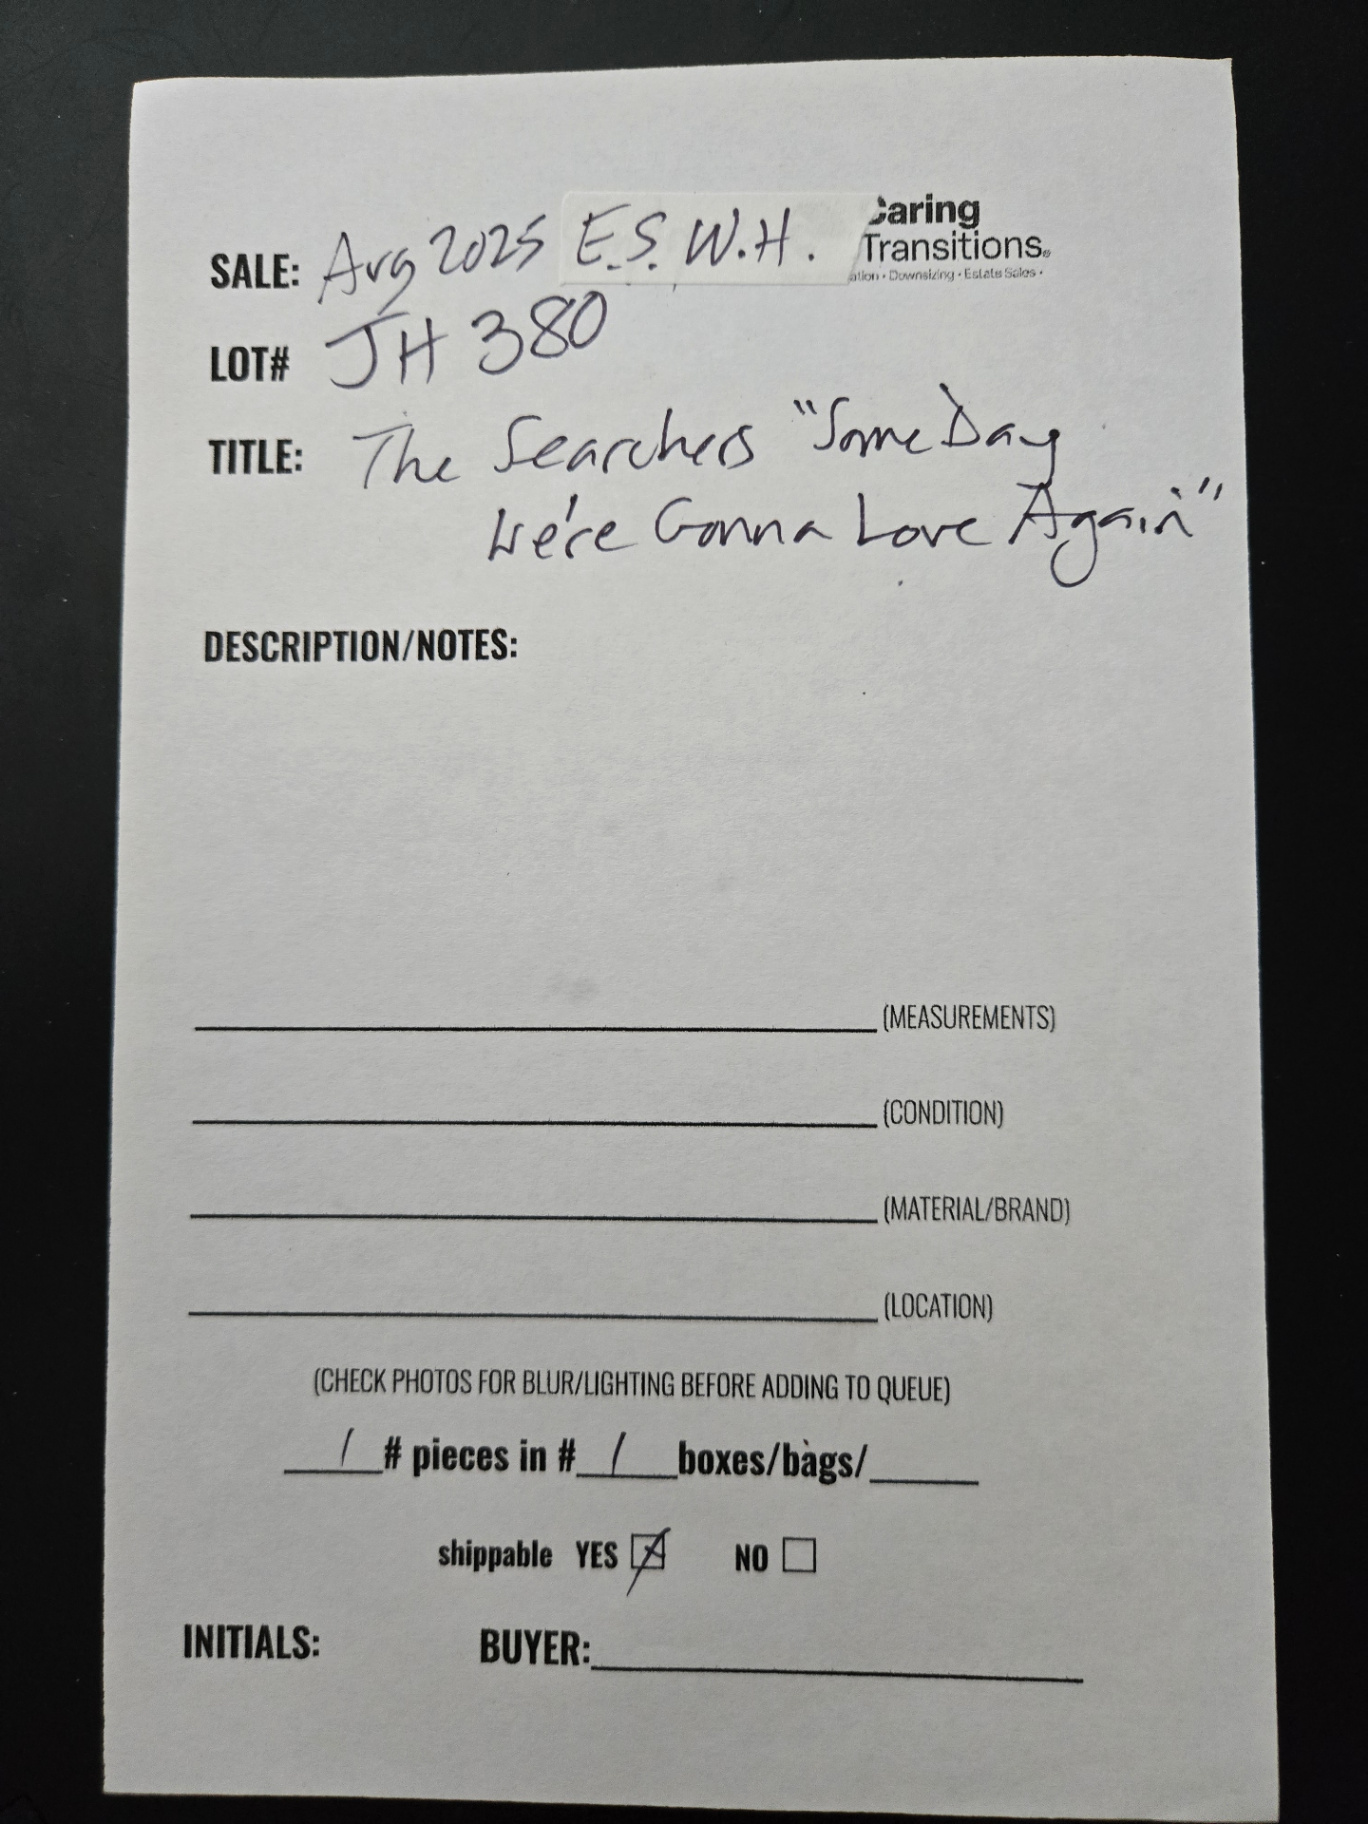 SALE: Aug 2025 E.S. W.H.
Caring
Transitions®
ation • Downsizing • Estate Sales •
LOT# JH 380
TITLE: The Searchers "Some Day
We're Gonna Love Again"
DESCRIPTION/NOTES:
(MEASUREMENTS)
(CONDITION)
(MATERIAL/BRAND)
(LOCATION)
(CHECK PHOTOS FOR BLUR/LIGHTING BEFORE ADDING TO QUEUE)
1 # pieces in # 1 boxes/bags/
shippable YES ☒ NO ☐
INITIALS: BUYER: